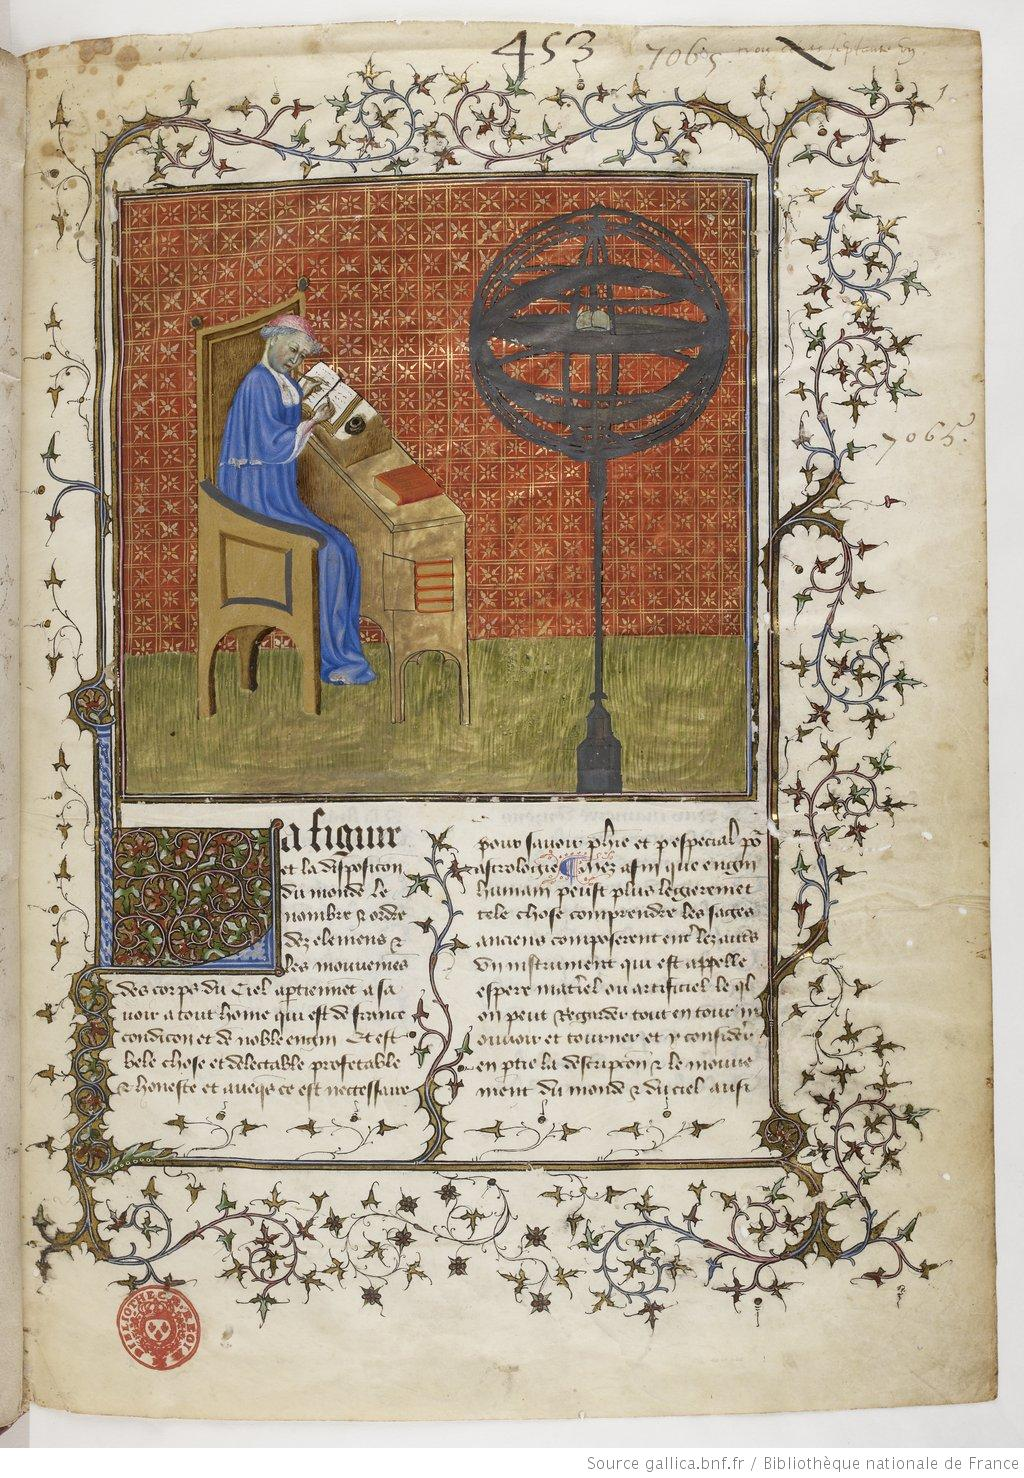 453
7065
1
7065.
La figure
et la disposicon
du monde le
nombre & ordre
dez elemens &
les mouuemẽs
des corps du Ciel aptiennẽt a sa
uoir a tout hõme qui est de france
condicõn et de noble engin Et est
bele chose et delectable profetable
& honeste et aueqs ce est necessaire
pour sauoir phie et p especial põ
astrologie ¶ Mez afin que engin
humain peust plus legieremẽt
tele chose comprendre les sages
anciens composerent entˀ lez autˀs
un instrument qui est appelle
espere matˀiel ou artificiel le ql
on peut Regarder tout en tour m
ouuoir et tourner et y considerˀ
en ptie la descripcõn & le mouue
ment du monde & du ciel ausi
BIBLIOTHECÆ REGIÆ
Source gallica.bnf.fr / Bibliothèque nationale de France